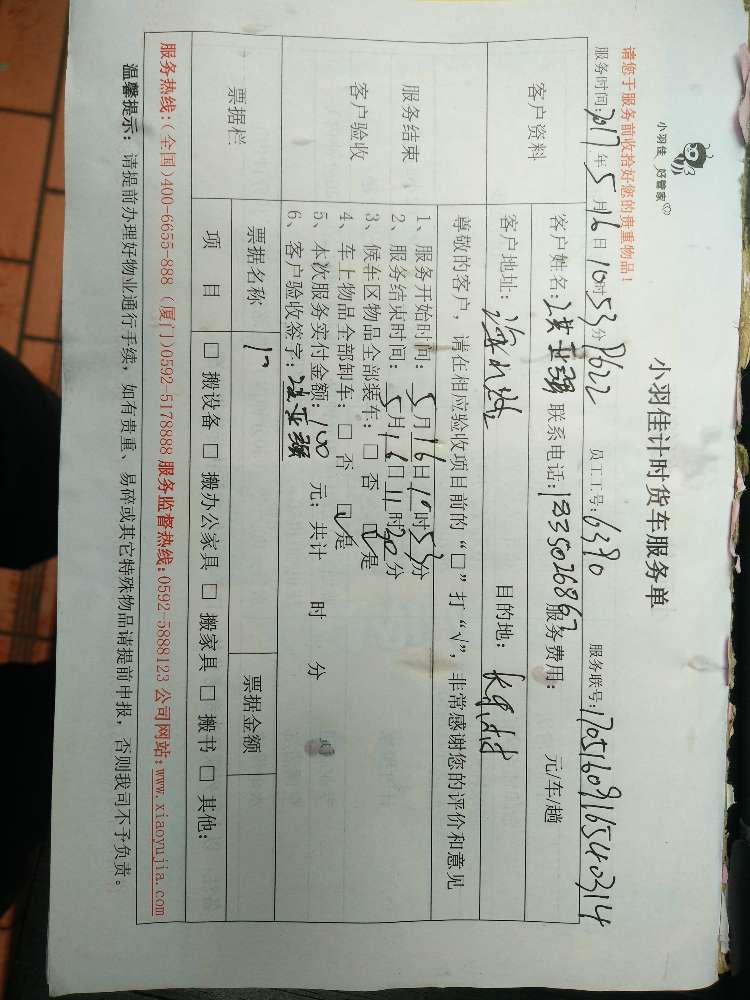 小羽佳 好管家
小羽佳计时货车服务单
请您于服务前收拾好您的贵重物品！
服务时间：2017年5月16日10时53分 员工工号：6390 服务联号：1705160916540314
客户资料
客户姓名： 亚强 联系电话： 服务费用： 元/车/趟
客户地址： 目的地：
服务结束
客户验收
尊敬的客户，请在相应验收项目前的“□”打“√”，非常感谢您的评价和意见
1、服务开始时间：5月16日10时53分
2、服务结束时间：5月16日11时30分
3、候车区物品全部装车：□ 否 ☑ 是
4、车上物品全部卸车：□ 否 ☑ 是
5、本次服务实付金额：100 元；共计 时 分
6、客户验收签字： 亚强
票据栏
票据名称 票据金额
项 目 □ 搬设备 □ 搬办公家具 □ 搬家具 □ 搬书 □ 其他：
服务热线：(全国)400-6655-888 (厦门)0592-5178888 服务监督热线：0592-5888123 公司网站：www.xiaoyujia.com
温馨提示：请提前办理好物业通行手续，如有贵重、易碎或其它特殊物品请提前申报，否则我司不予负责。